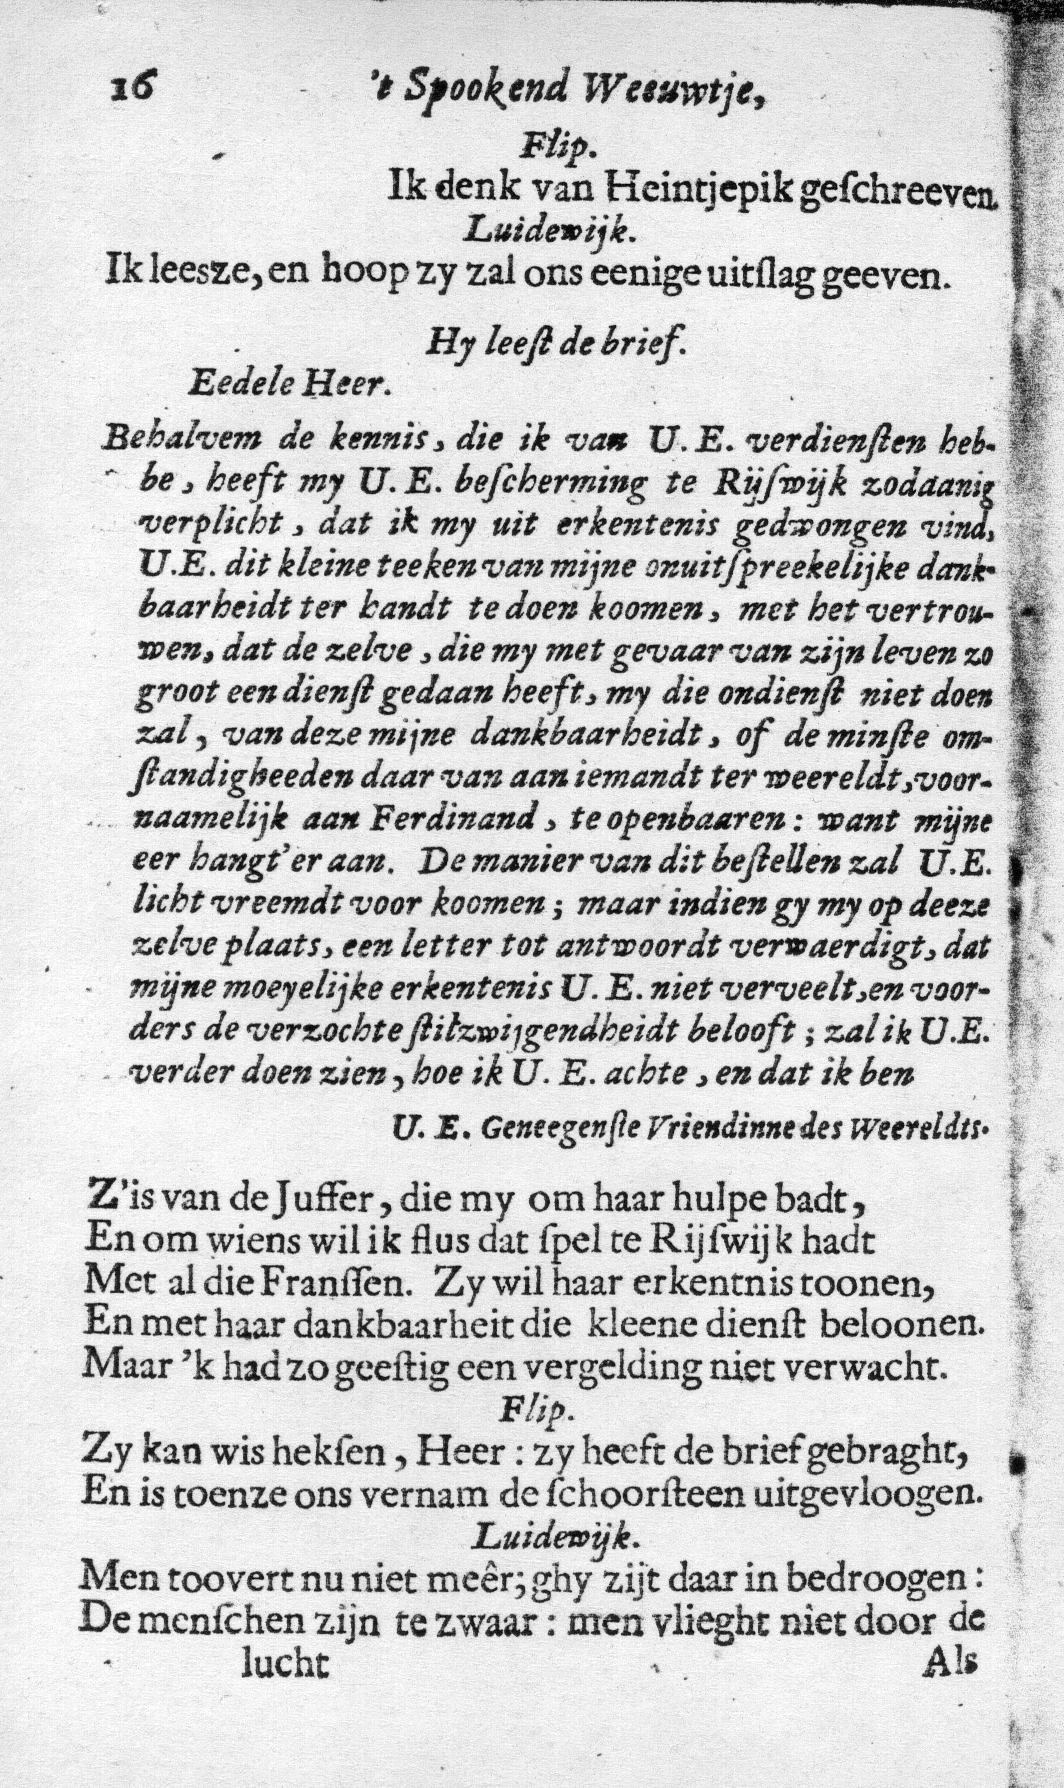 16 't Spookend Weeuwtje,
Flip.
Ik denk van Heintjepik geſchreeven.
Luidewijk.
Ik leesze, en hoop zy zal ons eenige uitſlag geeven.
Hy leeſt de brief.
Eedele Heer.
Behalvem de kennis, die ik van U. E. verdienſten heb-
be, heeft my U. E. beſcherming te Rijſwijk zodaanig
verplicht, dat ik my uit erkentenis gedwongen vind,
U.E. dit kleine teeken van mijne onuitſpreekelijke dank-
baarheidt ter handt te doen koomen, met het vertrou-
wen, dat de zelve, die my met gevaar van zijn leven zo
groot een dienſt gedaan heeft, my die ondienſt niet doen
zal, van deze mijne dankbaarheidt, of de minſte om-
ſtandigheeden daar van aan iemandt ter weereldt, voor-
naamelijk aan Ferdinand, te openbaaren: want mijne
eer hangt'er aan. De manier van dit beſtellen zal U.E.
licht vreemdt voor koomen; maar indien gy my op deeze
zelve plaats, een letter tot antwoordt verwaerdigt, dat
mijne moeyelijke erkentenis U. E. niet verveelt, en voor-
ders de verzochte ſtilzwijgendheidt belooft; zal ik U.E.
verder doen zien, hoe ik U. E. achte, en dat ik ben
U. E. Geneegenſte Vriendinne des Weereldts.
Z'is van de Juffer, die my om haar hulpe badt,
En om wiens wil ik flus dat ſpel te Rijſwijk hadt
Met al die Franſſen. Zy wil haar erkentnis toonen,
En met haar dankbaarheit die kleene dienſt beloonen.
Maar 'k had zo geeſtig een vergelding niet verwacht.
Flip.
Zy kan wis hekſen, Heer: zy heeft de brief gebraght,
En is toenze ons vernam de ſchoorſteen uitgevloogen.
Luidewijk.
Men toovert nu niet meêr; ghy zijt daar in bedroogen:
De menſchen zijn te zwaar: men vlieght niet door de
lucht Als